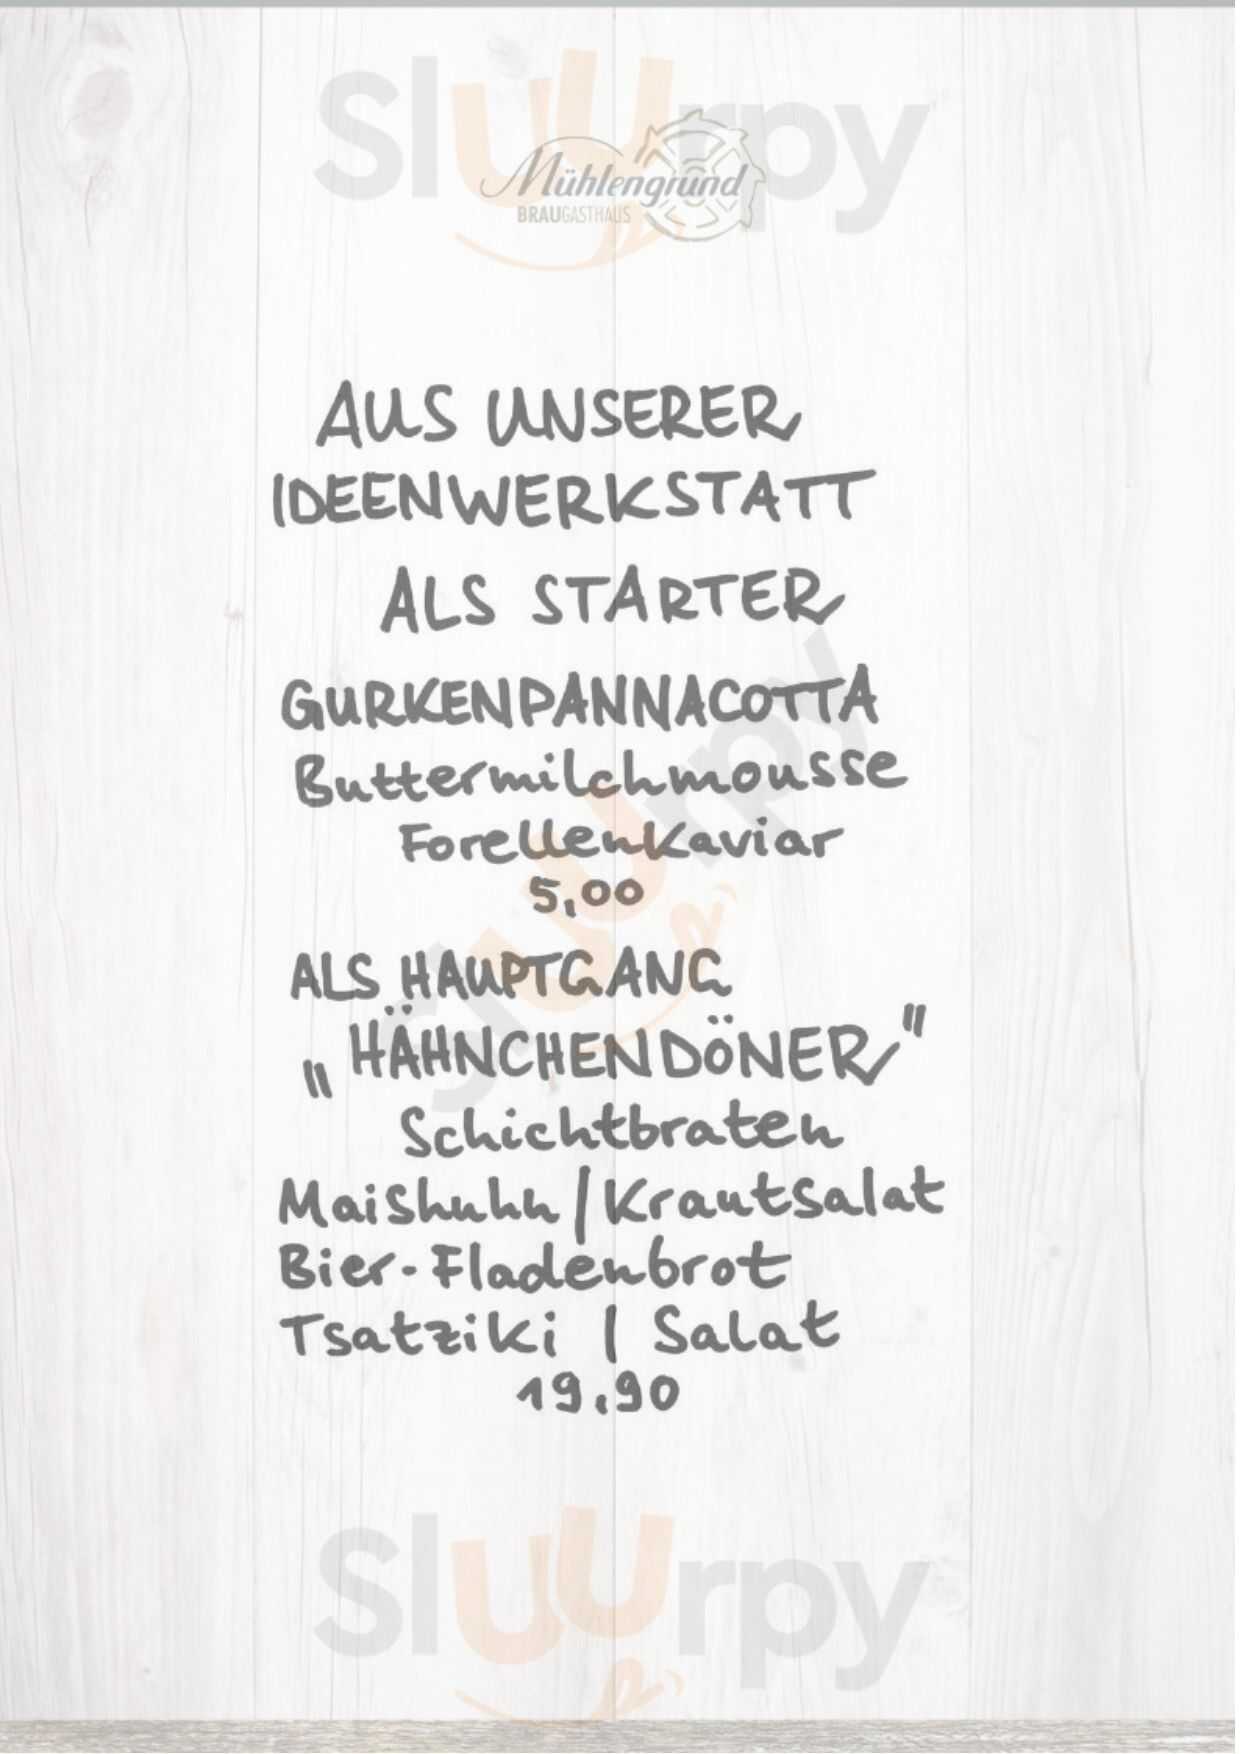 Sluurpy
Mühlengrund
BRAUGASTHAUS
AUS UNSERER
IDEENWERKSTATT
ALS STARTER
GURKENPANNACOTTA
Buttermilchmousse
Forellenkaviar
5,00
ALS HAUPTGANG
„HÄHNCHENDÖNER"
Schichtbraten
Maishuhn / Krautsalat
Bier-Fladenbrot
Tsatziki | Salat
19,90
Sluurpy
Sluurpy